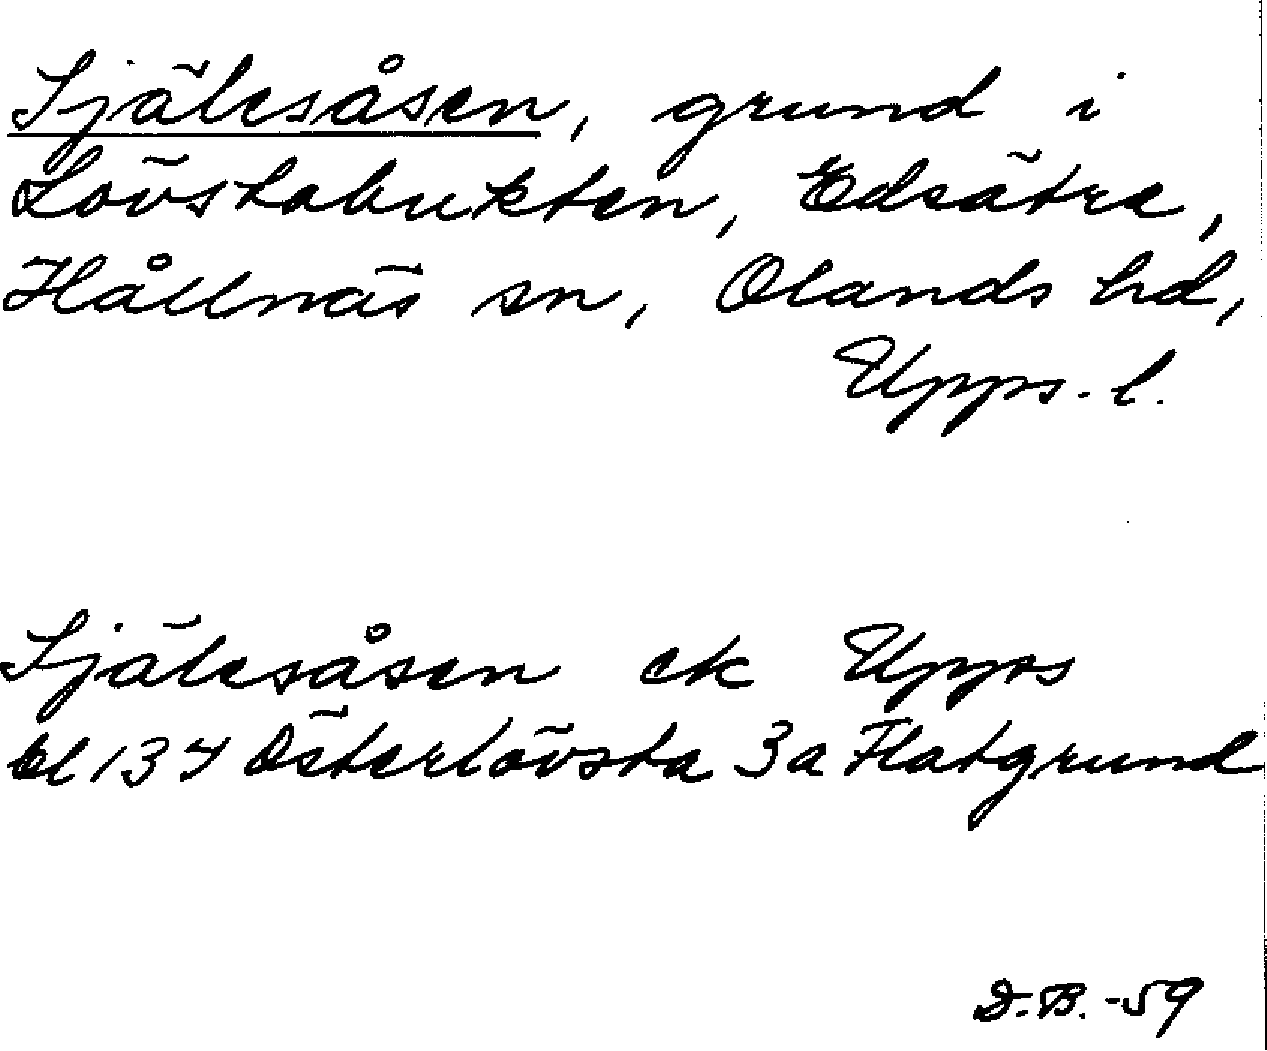 Själesåsen, grund i
Lövstabukten, Edsätra,
Hållnäs sn, Olands hd,
Upps. l.
Själesåsen ek Upps
bl 134 Österlövsta 3a Flatgrund
D.B. -59